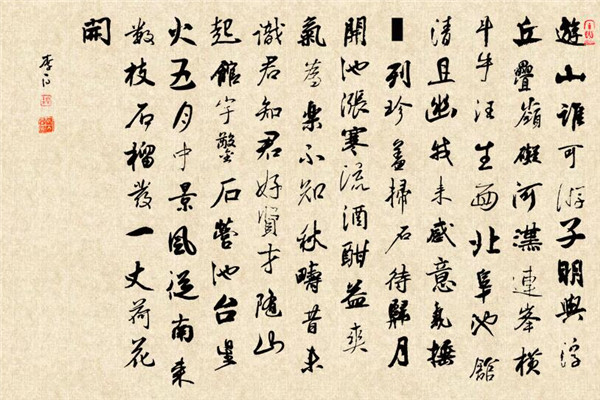 遊山誰可游子明與浮
丘疊嶺礙河漢連峯橫
斗牛汪生面北阜池館
清且幽我来感意氣搥
列珍羞掃石待歸月
開池漲寒流酒酣益爽
氣為樂不知秋疇昔未
識君知君好賢才隨山
起館宇鑿石營池台星
火五月中景風從南来
數枝石榴發一丈荷花
開
李白